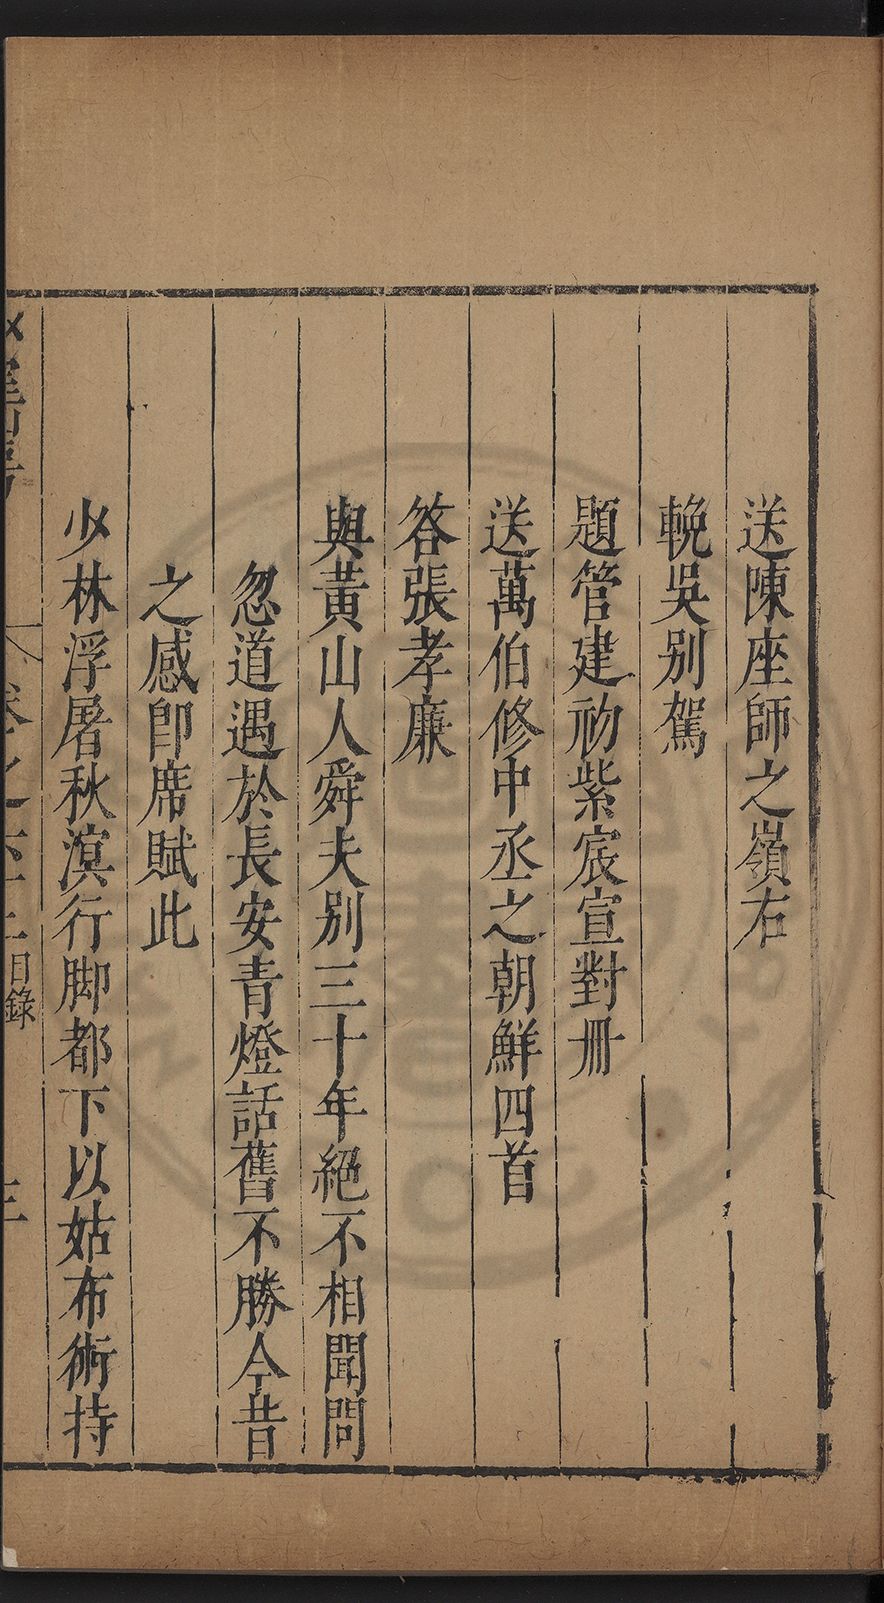 送陳座師之嶺右
輓吳别駕
題管建礽紫宸宣對冊
送萬伯修中丞之朝鮮四首
答張孝廉
與黃山人舜夫别三十年絕不相聞問
忽道遇於長安青燈話舊不勝今昔
之感卽席賦此
少林浮屠秋溟行脚都下以姑布術持
卷之 目錄 三